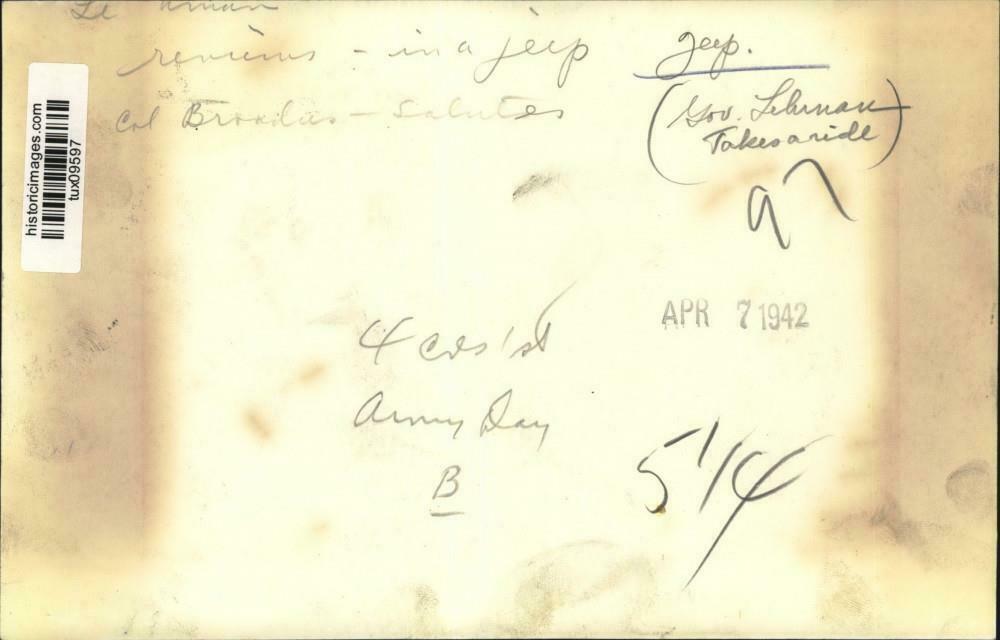 reviews - in a jeep
Col - Salutes
Jeep.
(Gov. Lehman
Takes a ride)
97
historicimages.com
tux09597
APR 7 1942
4 cols 1st
Army Day
B
514